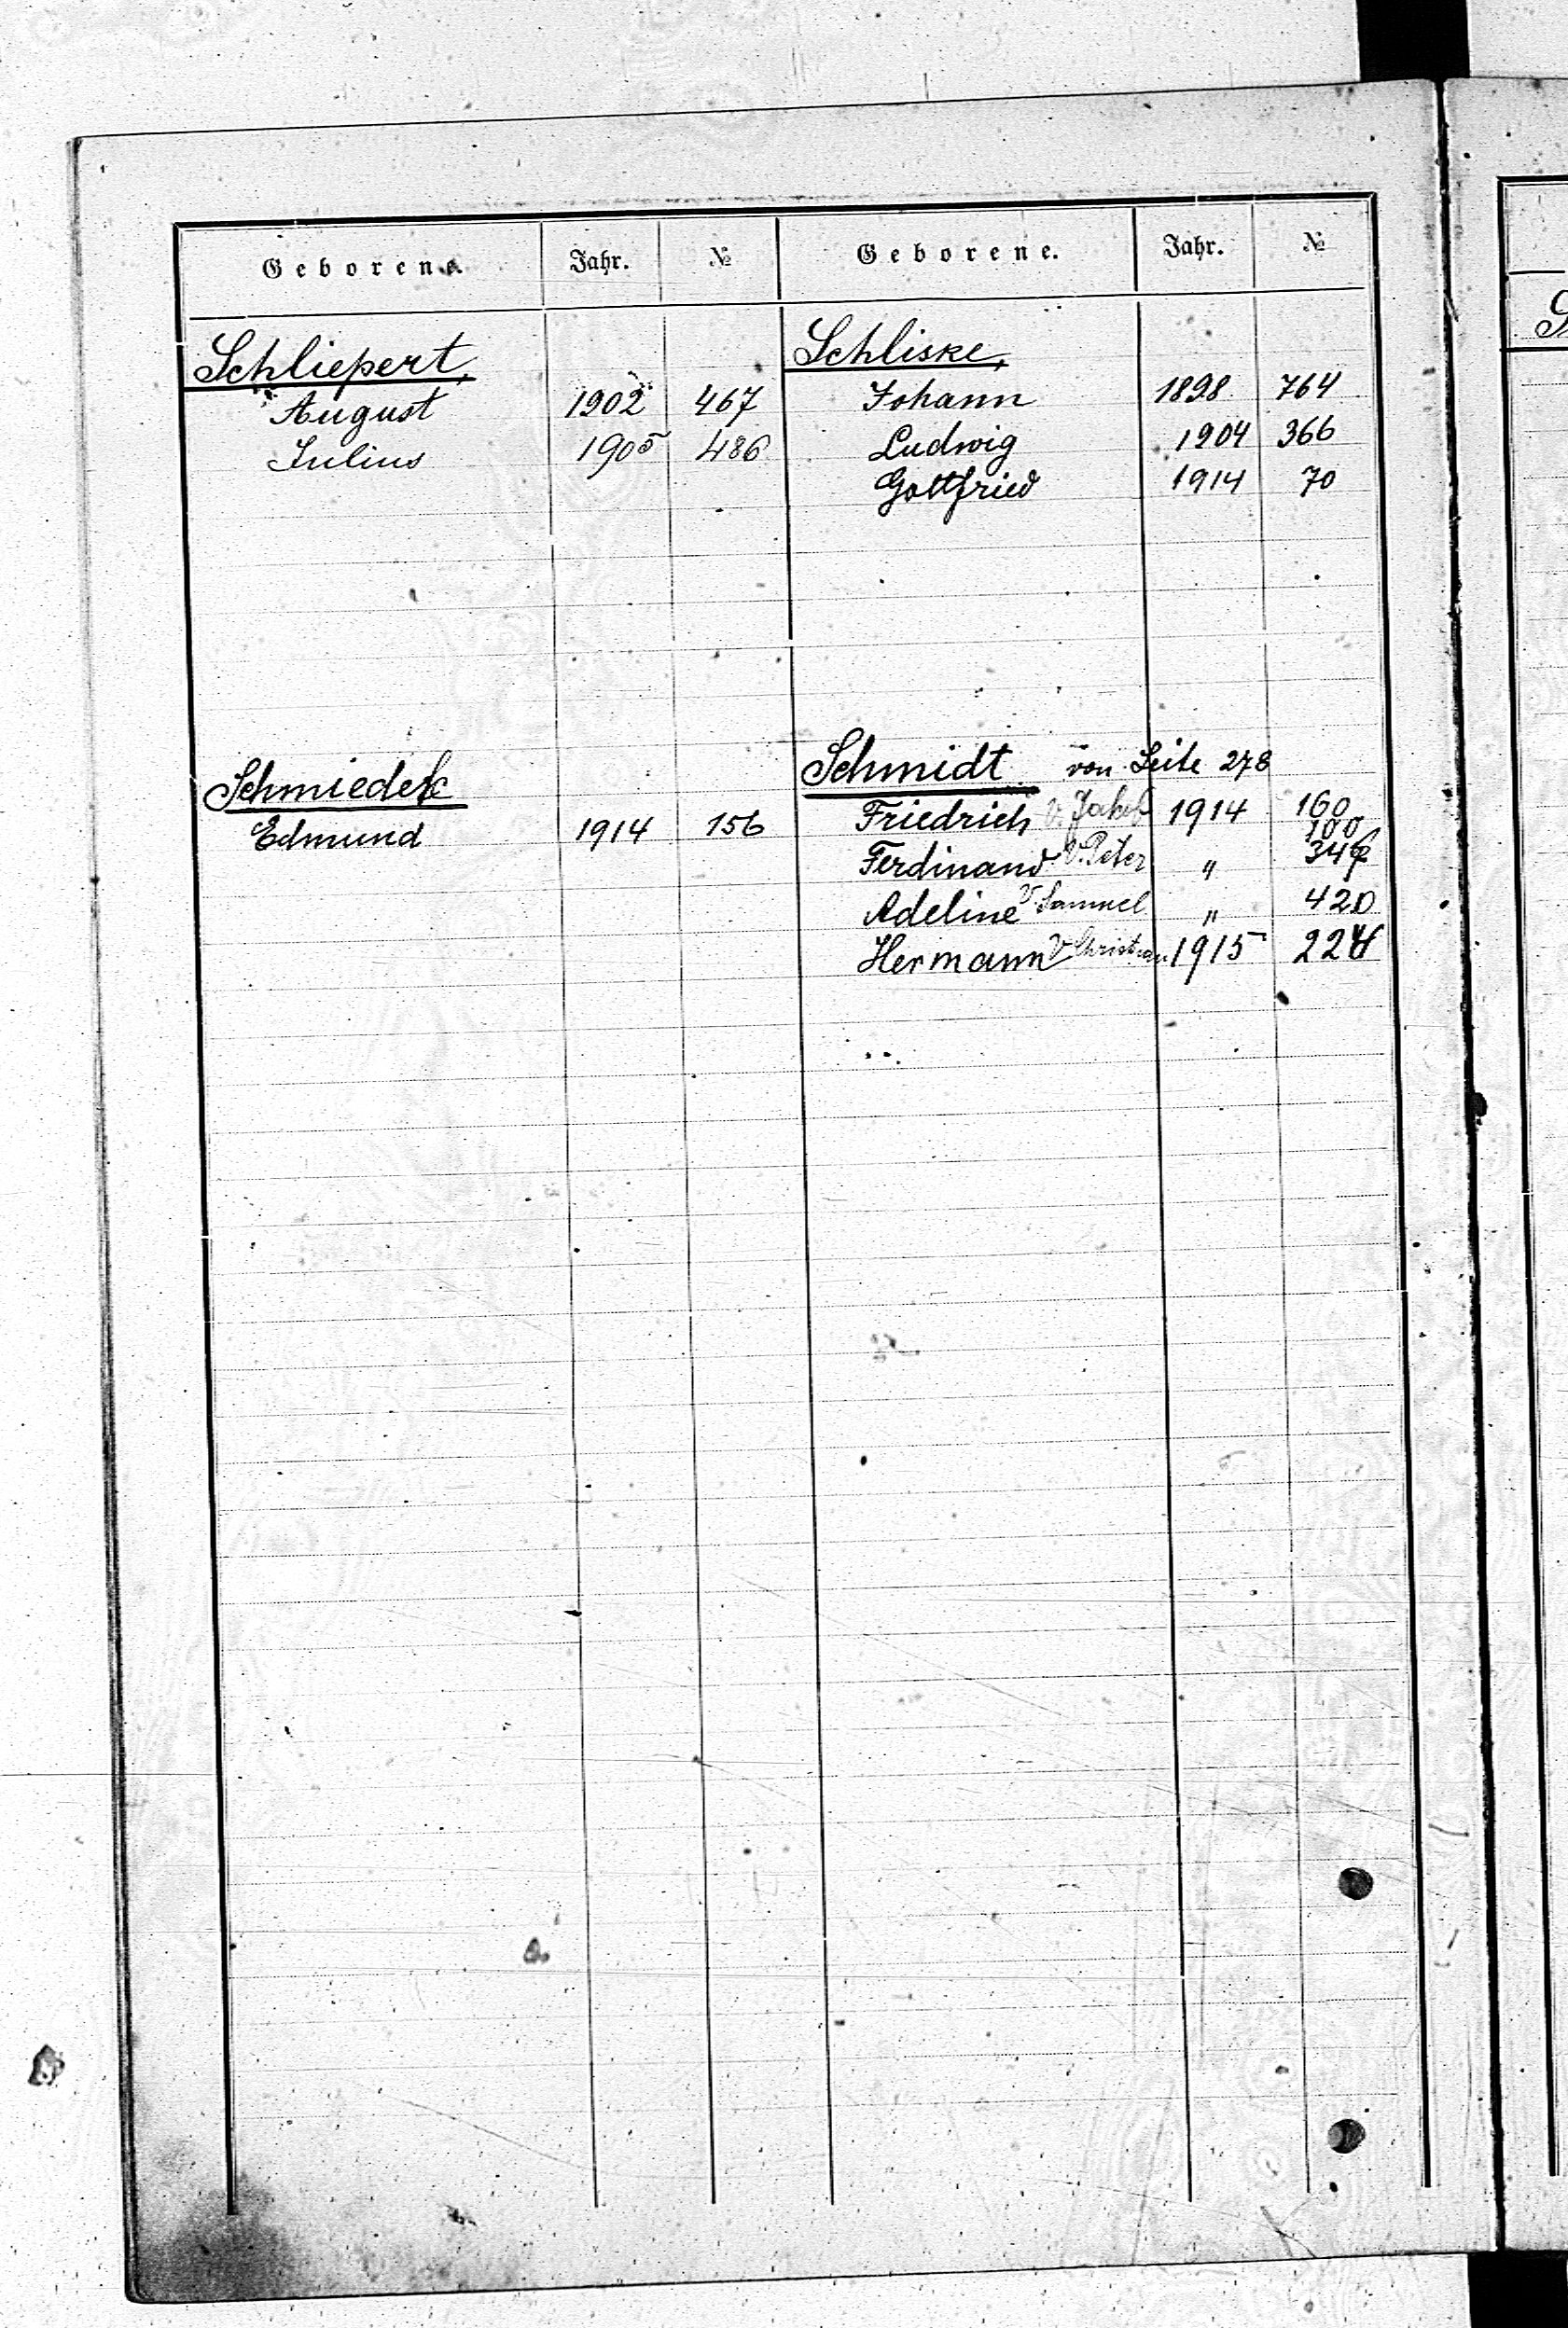 Geborene. Jahr. № Geborene. Jahr. №
Schliepert,
August 1902 467
Julius 1905 486
Schliske,
Johann 1898 764
Ludwig 1904 366
Gottfried 1914 70
Schmiedek
Edmund 1914 156
Schmidt. von Seite 278
Friedrich V. Jakob 1914 160
100
Ferdinand V. Peter "
Adeline V Samuel " 420
Hermann V Christian 1915